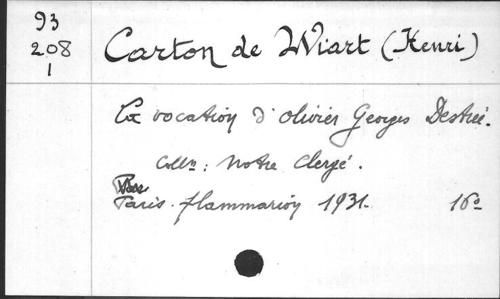 93
208
1
Carton de Wiart (Henri)
La vocation d'Olivier Georges Destrée.
Colln: Notre Clergé.
Paris. Flammarion 1931. 16º